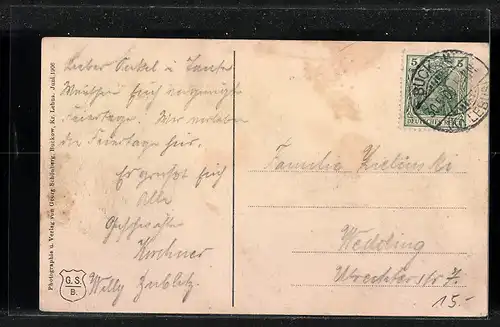 Photographie u. Verlag von Georg Schönberg, Buckow, Kr. Lebus. Juni 1906
Lieber Onkel u Tante
Wünschen Euch vergnügte
Feiertage. Wir verleben
die Feiertage hier.
Es grüsst Euch
Alle
Geschwister
Kirchner
Willy
G. S.
B.
5 5
DEUTSCHES REICH
BUCKOW
LEBUS
Familie Zielinski
Wedding
Utrechterstr 7.
15.-